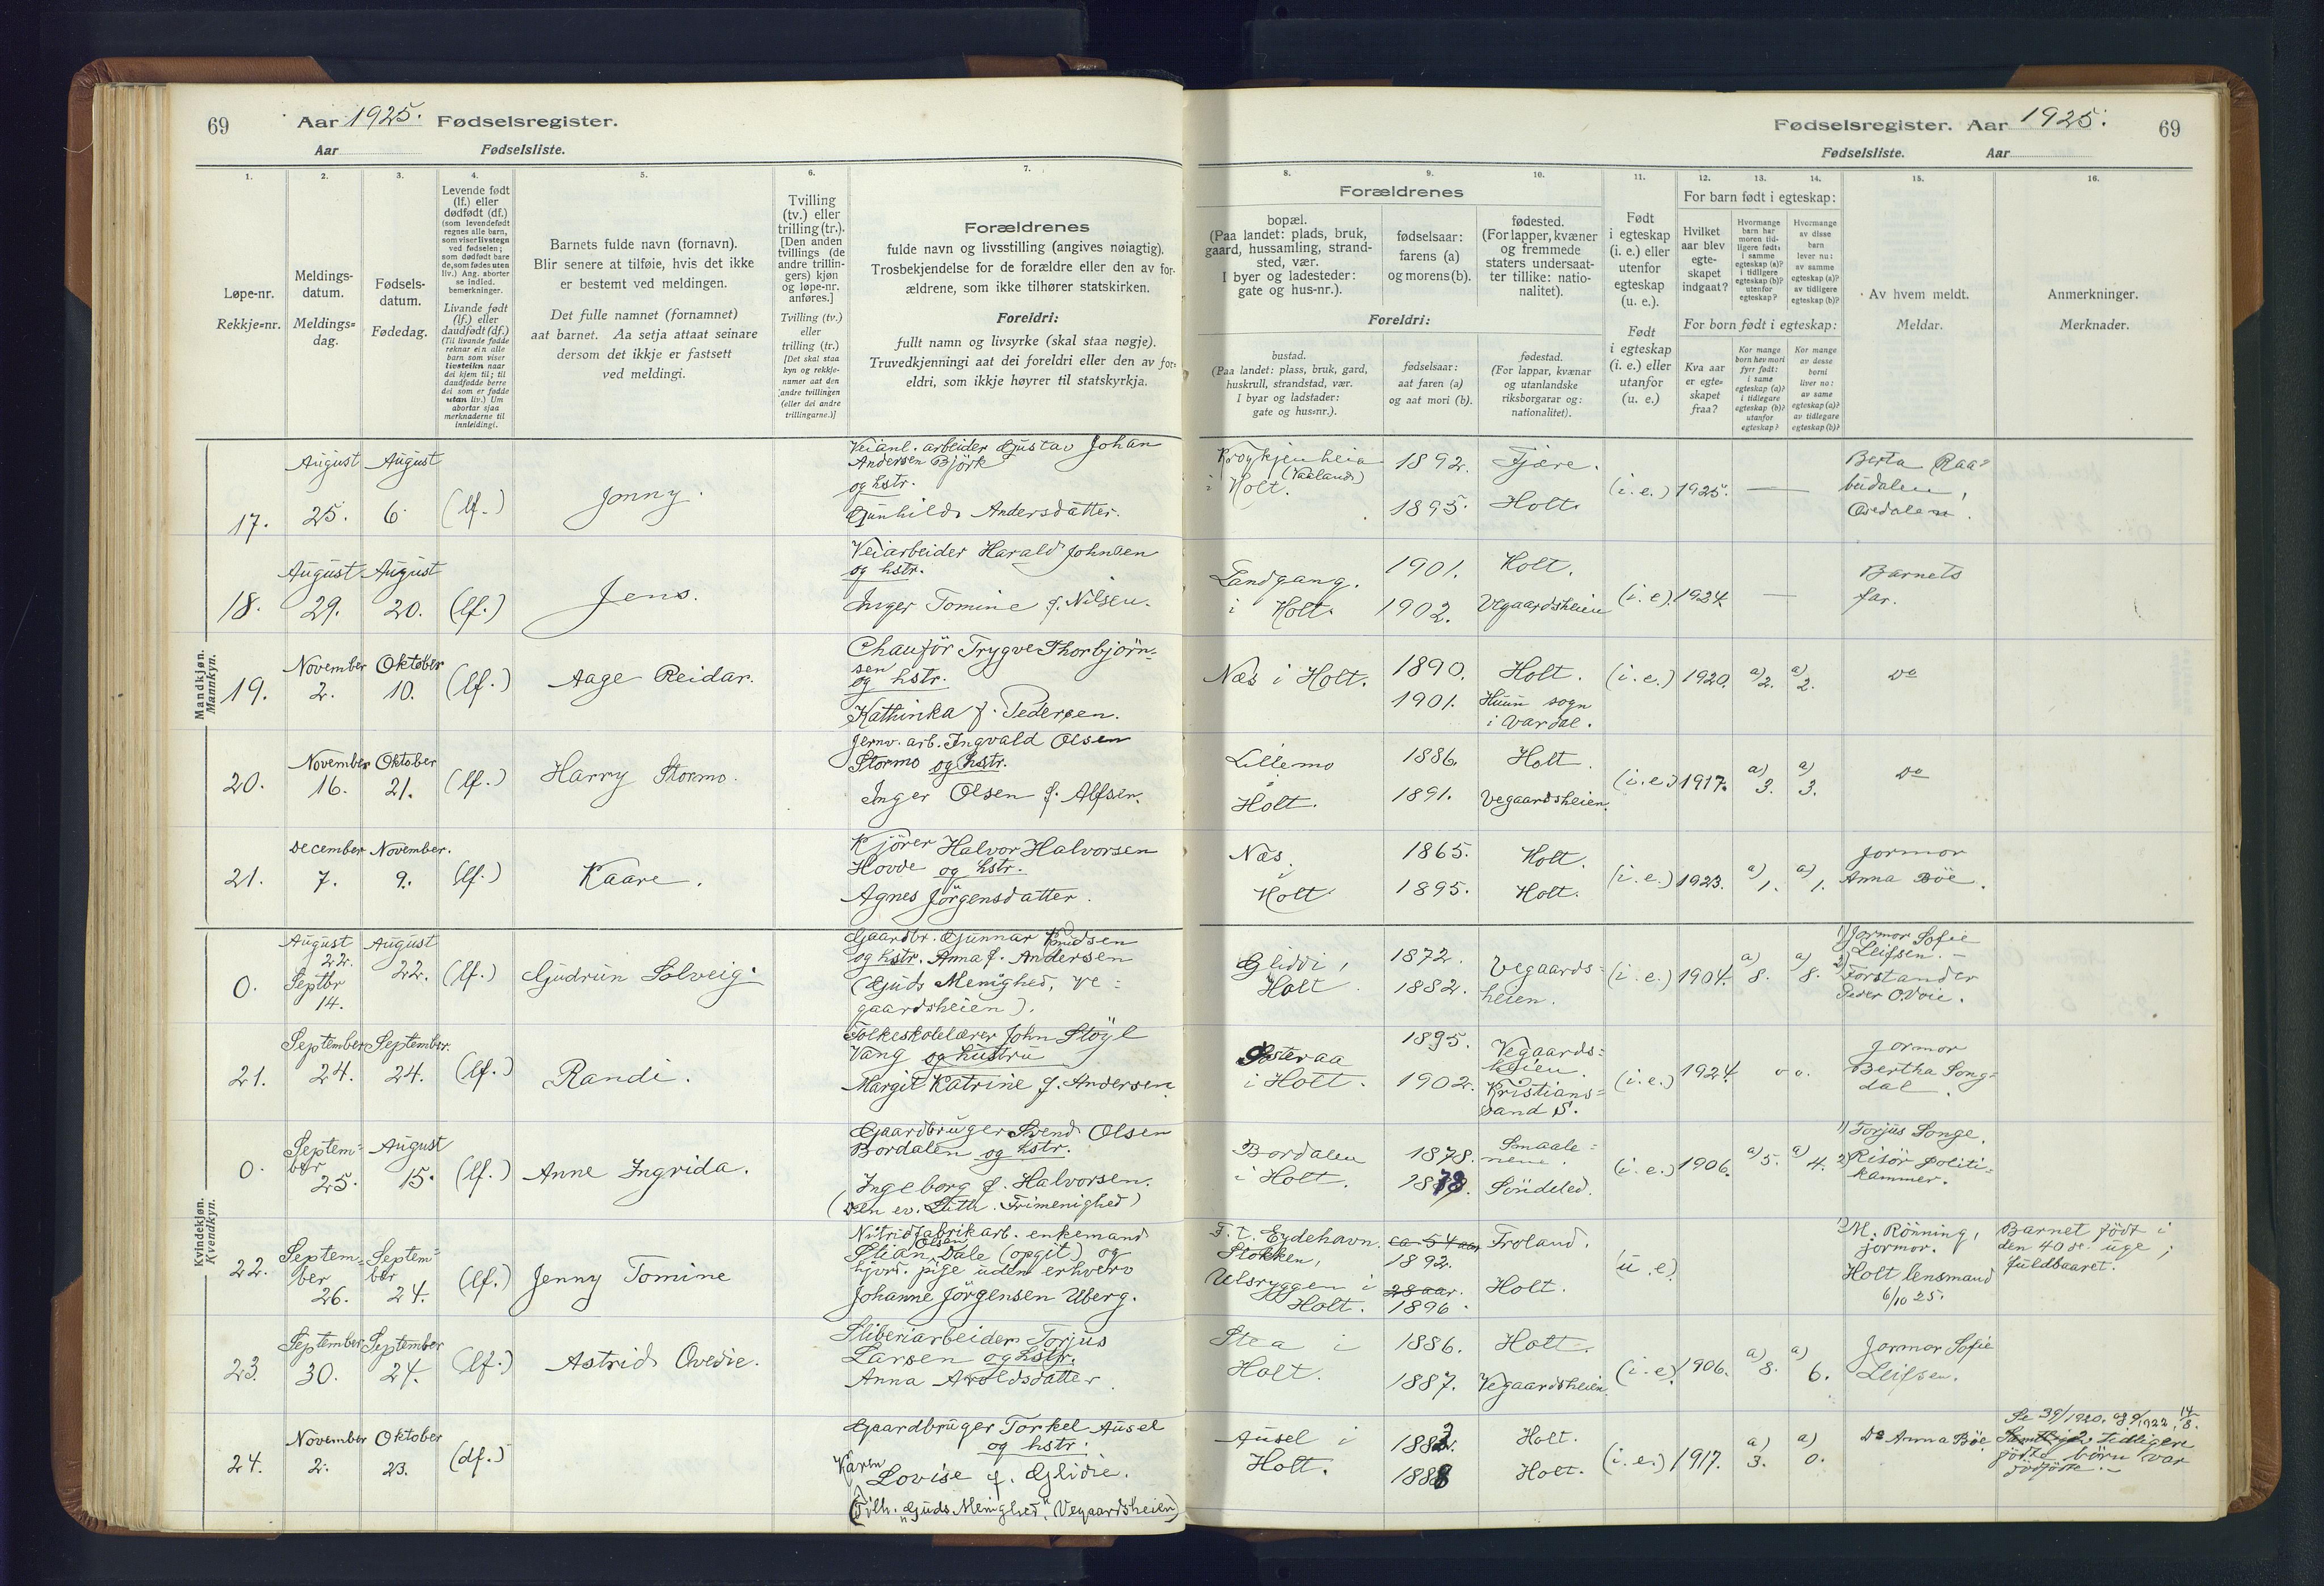 69
Aar 1925. Fødselsregister.
Aar Fødselsliste.
Fødselsregister. Aar 1925.
69
Fødselsliste. Aar
1.
Løpe-nr.
Rekkje=nr.
2.
Meldings-
datum.
Meldings=
dag.
3.
Fødsels-
datum.
Fødedag.
4.
Levende født
(lf.) eller
dødfødt (df.)
(som levendefødt
regnes alle barn,
som viser livstegn
ved fødselen;
som dødfødt bare
de, som fødes uten
liv.) Ang. aborter
se indled.
bemerkninger.
Livande født
(lf.) eller
daudfødt (df.)
(Til livande fødde
reknar ein alle
barn som viser
livsteikn naar
dei kjem til; til
daudfødde berre
dei som er fødde
utan liv.) Um
abortar sjaa
merknaderne til
innleidingi.
5.
Barnets fulde navn (fornavn).
Blir senere at tilføie, hvis det ikke
er bestemt ved meldingen.
Det fulle namnet (fornamnet)
aat barnet. Aa setja attaat seinare
dersom det ikkje er fastsett
ved meldingi.
6.
Tvilling
(tv.) eller
trilling (tr.).
[Den anden
tvillings (de
andre trillin-
gers) kjøn
og løpe-nr.
anføres.]
Tvilling (tv.)
eller
trilling (tr.)
[Det skal staa
kyn og rekkje-
numer aat den
andre tvillingen
(eller dei andre
trillingarne.)]
7.
Forældrenes
fulde navn og livsstilling (angives nøiagtig).
Trosbekjendelse for de forældre eller den av for-
ældrene, som ikke tilhører statskirken.
Foreldri:
fullt namn og livsyrke (skal staa nøgje).
Truvedkjenningi aat dei foreldri eller den av for-
eldri, som ikkje høyrer til statskyrkja.
Forældrenes
8.
bopæl.
(Paa landet: plads, bruk,
gaard, hussamling, strand-
sted, vær.
I byer og ladesteder:
gate og hus-nr.).
9.
fødselsaar:
farens (a)
og morens (b).
10.
fødested.
(For lapper, kvæner
og fremmede
staters undersaat-
ter tillike: natio-
nalitet).
Foreldri:
bustad.
(Paa landet: plass, bruk, gard,
huskrull, strandstad, vær.
I byar og ladstader:
gate og hus=nr.).
fødselsaar:
aat faren (a)
og aat mori (b).
fødestad.
(For lappar, kvænar
og utanlandske
riksborgarar og:
nationalitet).
11.
Født
i egteskap
(i. e.) eller
utenfor
egteskap
(u. e.).
Født
i egteskap
(i. e.) eller
utanfor
(u. e.)
For barn født i egteskap:
12.
Hvilket
aar blev
egte-
skapet
indgaat?
13.
Hvormange
barn har
moren tid-
ligere født:
i samme
egteskap (a)?
i tidligere
egteskap (b)?
utenfor
egteskap?
14.
Hvormange
av disse
barn
lever nu:
av samme
egteskap (a)?
av tidligere
egteskap (b)?
For born født i egteskap:
Kva aar
er egte=
skapet
fraa?
Kor mange
born hev mori
fyrr født:
i same
egteskap (a)?
i tidlegare
egteskap (b)?
utanfor
egteskap?
Kor mange
av desse
borni
liver no:
av same
egteskap (a)?
av tidlegare
egteskap (b)?
15.
Av hvem meldt.
Meldar.
16.
Anmerkninger.
Merknader.
Mandkjøn.
Mannkyn.
17. August 25. August 6. (lf.) Jonny.
Veianl. arbeider Gustav Johan
Andersen Björk
og hstr.
Gunhild Andersdatter.
(Vaaland)
i Holt.
1892. Fjære.
1895. Holt.
(i.e.) 1925. —
Berta
18. August 29. August 20. (lf.) Jens.
Veiarbeider Harald Johnsen
og hstr.
Inger Tomine f. Nilsen.
Landgang.
i Holt.
1901. Holt.
1902. Vegaardsheien
(i.e) 1924. —
Barnets
far.
19. November 2. Oktober 10. (lf.) Aage Reidar.
Chauför Trygve Thorbjörn-
sen
og hstr.
Kathinka f. Pedersen.
Næs i Holt.
1890. Holt.
1901. Huun sogn
i Vardal.
(i.e.) 1920. a) 2. a) 2. Do
20. November 16. Oktober 21. (lf.) Harry Stormo.
Jernv. arb. Ingvald Olsen
Stormo og hstr.
Inger Olsen f. Alfsen.
Lillemo
i
Holt.
1886. Holt.
1891. Vegaardsheien.
(i.e.) 1917. a) 3. a) 3. Do
21. December 7. November. 9. (lf.) Kaare.
Kjörer Halvor Halvorsen
Hovde og hstr.
Agnes Jörgensdatter.
Næs,
i
Holt
1865. Holt.
1895. Holt.
(i.e.) 1923. a) 1. a) 1.
Jormor
Anna Böe.
Kvindekjøn.
Kvendkyn.
0. August 22. Septbr 14. August 22. (lf.) Gudrun Solveig.
Gaardbr. Gunnar Knudsen
og hstr. Anna f. Andersen
(Guds Menighed, Ve=
gaardsheien).
Gliddi,
Holt.
1872. Vegaards=
1882. heien.
(i.e.) 1904. a) 8. a) 8.
1) Jormor Sofie
Leifsen. —
2) Forstander
Peder O. Voie.
21. September 24. September. 24. (lf.) Randi.
Folkeskolelærer John Stöyl
Vang og hustru
Margit Katrine f. Andersen.
Østeraa
i Holt.
1895. Vegaards=
heien.
1902. Kristians=
sand S.
(i.e.) 1924. o o.
Jormor
Bertha Song=
dal.
0. Septem=
ber 25. August 15. (lf.) Anne Ingrida.
Gaardbruger Svend Olsen
Bordalen og hstr.
Ingeborg f. Halvorsen.
(Den ev. Luth. Frimenighed)
Bordalen
i Holt.
1878. Smaale=
nene.
Söndeled.
(i.e.) 1906. a) 5. a) 4.
1) Torjus Songe.
2) Risör politi=
kammer.
22. Septem=
ber 26. Septem=
ber 24. (lf.) Jenny Tomine
Nitridfabrikarb. enkemand
Olsen
Stian Dale (opgit) og
hjvd. pige uden erhverv
Johanne Jörgensen Uberg.
F. t. Eydehavn.
Stokken,
Ulsryggen i
Holt.
ca 54 aar
1892.
28 aar.
1896.
Froland.
Holt.
u.e.)
1) M. Rönning,
jormor.
Holt lensmand
6/10 25.
Barnet født i
den 40 de uge;
fuldbaaret.
23. September 30. September 24. (lf.) Astrid Ovedie.
Sliberiarbeider Torjus
Larsen og hstr.
Anna Aroldsdatter
Stea i
Holt.
1886. Holt.
1887. Vegaardsheien.
(i.e) 1906. a) 8. a) 6.
Jormor Sofie
Leifsen.
24. November 2. Oktober 23. (df.)
Gaardbruger Torkel Ausel
og hstr.
Karen
Lovise f. Glidie.
(Tilh. "Guds Menighed", Vegaardsheien)
Ausel i
Holt.
1883. Holt.
1888 Holt.
(i.e.) 1917. a) 3. a) 0.
Do Anna Böe,
Se 39/1920. og 9/1922,
tidligere
födte börn var
dödfödte. —